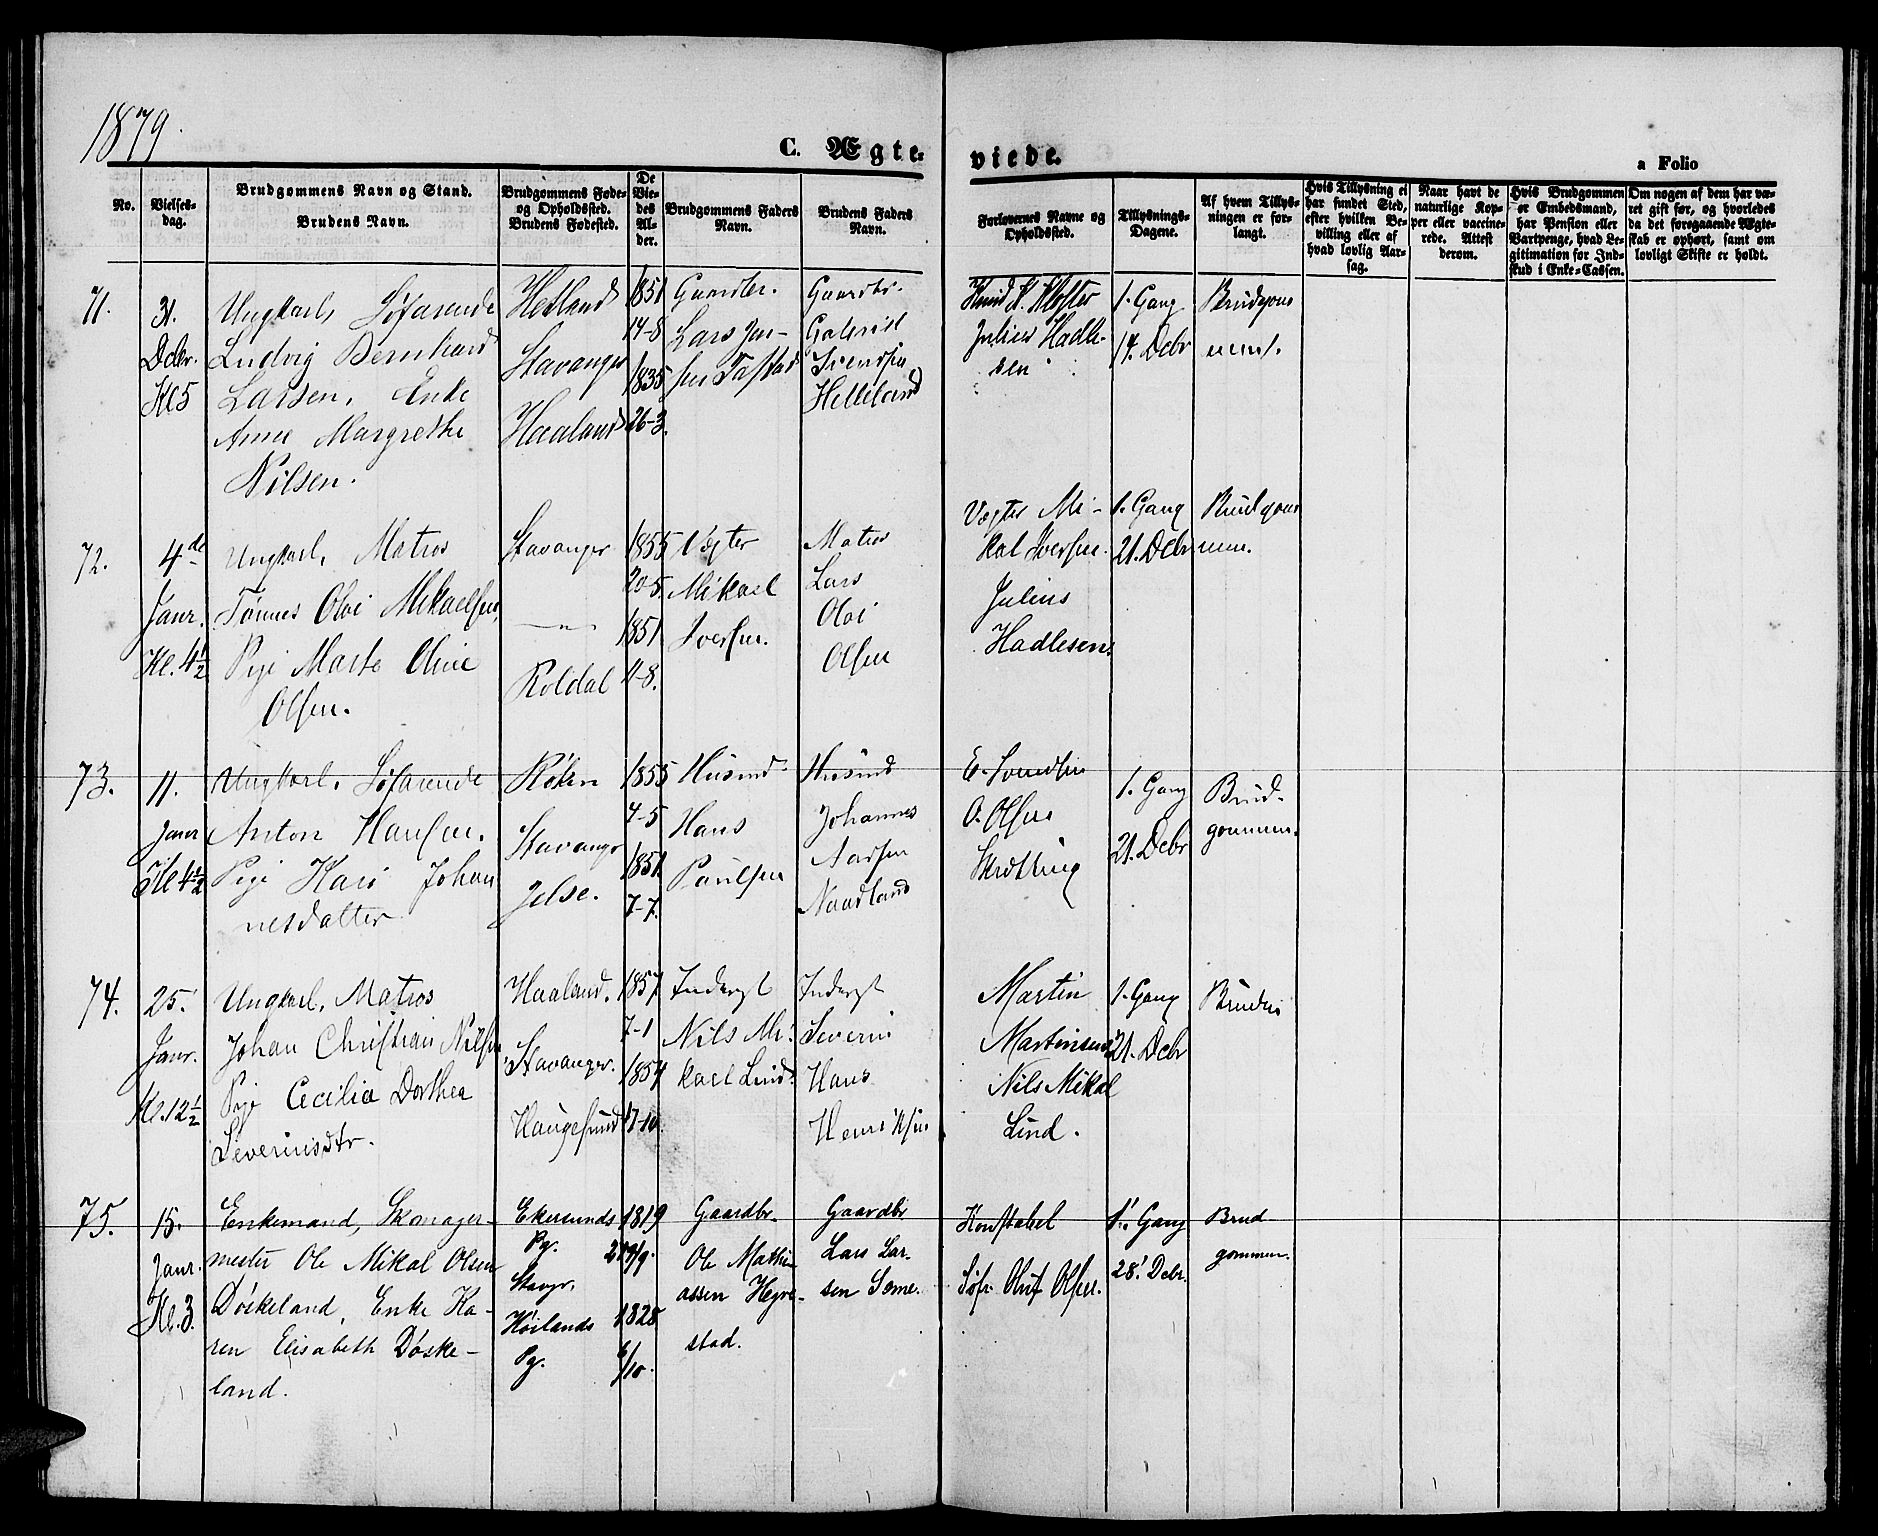 1879.
C. Ægte-
viede.
a Folio
No.
Vielses-
dag.
Brudgommens Navn og Stand.
Brudens Navn.
Brudgommens Føde-
og Opholdssted.
Brudens Fødested.
De
Vie-
des
Al-
der.
Brudgommens Faders
Navn.
Brudens Faders
Navn.
Forlovernes Navne og
Opholdssted.
Tillysnings-
Dagene.
Af hvem Tillys-
ningen er for-
langt.
Hvis Tillysning ei
har fundet Sted,
efter hvilken Be-
villing eller af
hvad lovlig Aar-
sag.
Naar havt de
naturlige Kop-
per eller vaccine-
rede. Attest
derom.
Hvis Brudgommen
er Embedsmand,
har Pension eller
Vartpenge, hvad Le-
gitimation for Ind-
skud i Enke-Cassen.
Om nogen af dem har væ-
ret gift før, og hvorledes
da det foregaaende Ægte-
skab er ophørt, samt om
lovligt Skifte er holdt.
71.
31.
Debr.
Kl 5
Ungkarl, Søfarende
Ludvig Bernhard
Larsen, Enke
Anne Margrethe
Nilsen.
Hetland
Stavanger
Haaland
1851
14-8
1835
26-3.
Gaardbr.
Lars Jen-
sen Tastad
Gaardbr.
Gabriel
Svendsen
Helleland
Knud K. Kloster
Julius Hadle-
sen
1. Gang
14. Debr
Brudgom
men.
72.
4de
Janr.
Kl. 4½
Ungkarl, Matros
Tønnes Olai Mikaelsen,
Pige Marte Oline
Olsen.
Stavanger
— " —
Roldal
1855
20-5.
1851
4-8.
Vægter
Mikael
Iversen.
Matros
Lars
Olai
Olsen
Vægter Mi-
kal Iversen.
Julius
Hadlesen.
1. Gang
21. Debr
Brudgom
men.
73.
11.
Janr
Kl 4½
Ungkarl, Søfarende
Anton Hansen.
Pige Kari Johan
nesdatter
Røken
Stavanger
Jelse.
1855
4-5
1851.
7-7.
Husmd
Hans
Paulsen
Husmd
Johannes
Aarsen
Naadland
E. Svendsen
O. Olsen
Skrætting
1. Gang
21. Debr
Brud-
gommen.
74.
25.
Janr.
Kl. 12½
Ungkarl, Matros
Johan Christian Nilsen
Pige Cecilia Dorthea
Severinsdtr.
Haaland.
Stavanger.
Haugesund
1857
7-1
1854
17-10.
Inderst
Nils Mi-
kael Lind.
Inderst
Severin
Hans
Henriksen
Martin
Martinsen
Nils Mikal
Lind.
1. Gang
21. Debr
Bruden
75.
15.
Janr.
Kl. 3.
Enkemand, Skomager-
mester Ole Mikal Olsen
Døskeland, Enke Ka-
ren Elisabeth Døske-
land.
Ekersunds
Pg.
Stavgr.
Høilands
Pg.
1819
1828
6/10.
Gaardbr.
Ole Mathi-
assen Hegre-
stad.
Gaardbr
Lars Lar-
sen Some.
Konstabel
Søfr. Oluf Olsen.
1. Gang
28. Debr.
Brud
gommen.